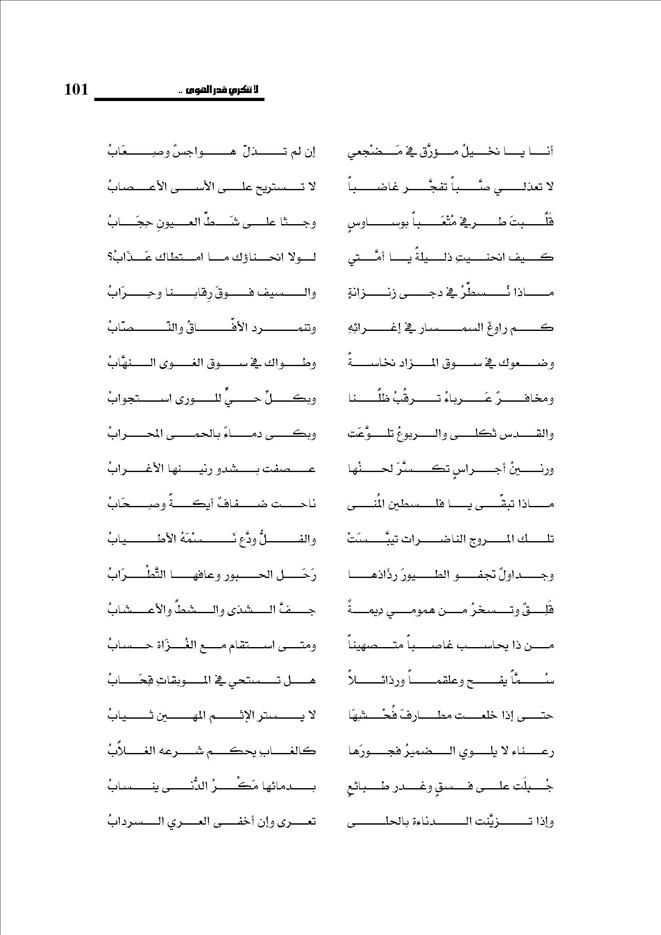 لا تنكري قدر الهوى .. 101
أنا يا نخيلُ مؤرَّق في مَضْجعي إن لم تذلّ هواجسٌ وصِعَابُ
لا تعذلي صبَّاً تفجَّر غاضباً لا تستريح على الأسى الأعصابُ
قَلَّبتَ طرفي مُتْعَباً بوساوسٍ وجثا على شَطِّ العيونِ حِجَابُ
كيف انحنيتِ ذليلةً يا أمَّتي لولا انحناؤك ما امتطاك عَذَابُ؟
ماذا نُسطِّرُ في دجى زنزانةٍ والسيف فوق رقابنا وحِرَابُ
كم راوغَ السمسار في إغرائهِ وتنمرد الأفَّاقُ والنَّصَّابُ
وضعوك في سوق المزاد نخاسةً وطواك في سوق الغوى النهَّابُ
ومخافرٌ عَرباءُ ترقُبُ ظلَّنا وبكلِّ حيٍّ للورى استجوابُ
والقدس ثكلى والربوعُ تلوَّعَت وبكى دماءً بالحمى المحرابُ
ورنينُ أجراسٍ تكسَّرَ لحنُها عصفت بشدو رنينها الأغرابُ
ماذا تبقَّى يا فلسطين المُنى ناحت ضفافٌ أيكةً وصِحَابُ
تلك المروج الناضرات تيبَّسَتْ والفلُّ ودَّع نَسْمَهُ الأطيابُ
وجداولٌ تجفو الطيورَ رذاذها رَحَل الحبور وعافها التَّطْرَابُ
قَلِقٌ وتسخرُ من همومي ديمةٌ جفَّ الشذى والشطُّ والأعشابُ
من ذا يحاسب غاصباً متصهيناً ومتى استقام مع الغُزَاة حسابُ
سُمَّاً يفحّ وعلقماً ورذائلاً هل تستحي في الموبقاتِ قِحَابُ
حتى إذا خلعت مطارفَ فُحْشِهَا لا يستر الإثم المهين ثيابُ
رعناء لا يلوي الضميرُ فجورَها كالغابِ يحكم شرعه الغلاَّبُ
جُبِلَت على فسقٍ وغدر طبائعٍ بدمائها مَكْرُ الدُّنى ينسابُ
وإذا تزيَّنت الدناءة بالحلى تعرى وإن أخفى العري السردابُ